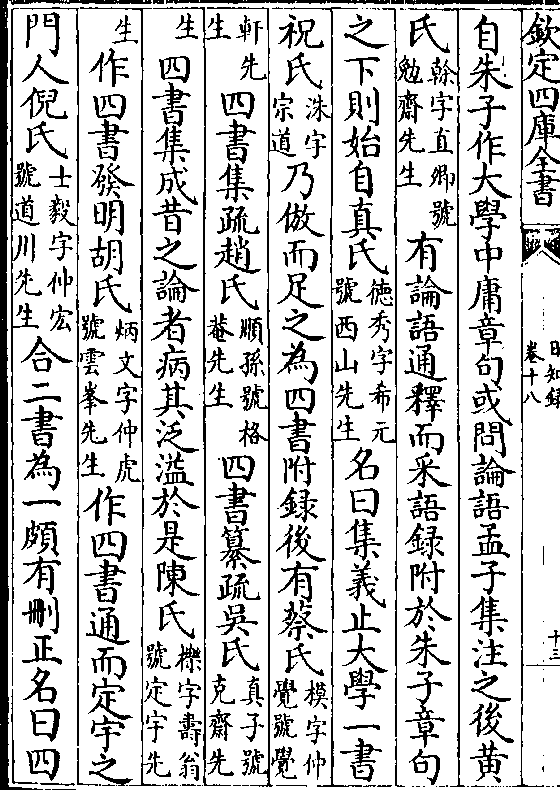 欽定四庫全書
日知録
卷十八
十三
自朱子作大學中庸章句或問論語孟子集注之後黄
氏榦字直卿號勉齋先生有論語通釋而采語録附於朱子章句
之下則始自真氏德秀字希元號西山先生名曰集義止大學一書
祝氏洙字宗道乃倣而足之為四書附録後有蔡氏模字仲覺號覺
軒先生四書集疏趙氏順孫號格菴先生四書纂疏吳氏真子號克齋先
生四書集成昔之論者病其泛溢於是陳氏櫟字壽翁號定宇先
生作四書發明胡氏炳文字仲虎號雲峯先生作四書通而定宇之
門人倪氏士毅字仲宏號道川先生合二書為一頗有刪正名曰四